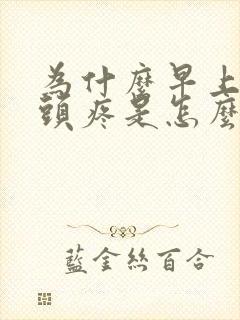 為什麼早上
頭疼是怎麼
藍金絲百合